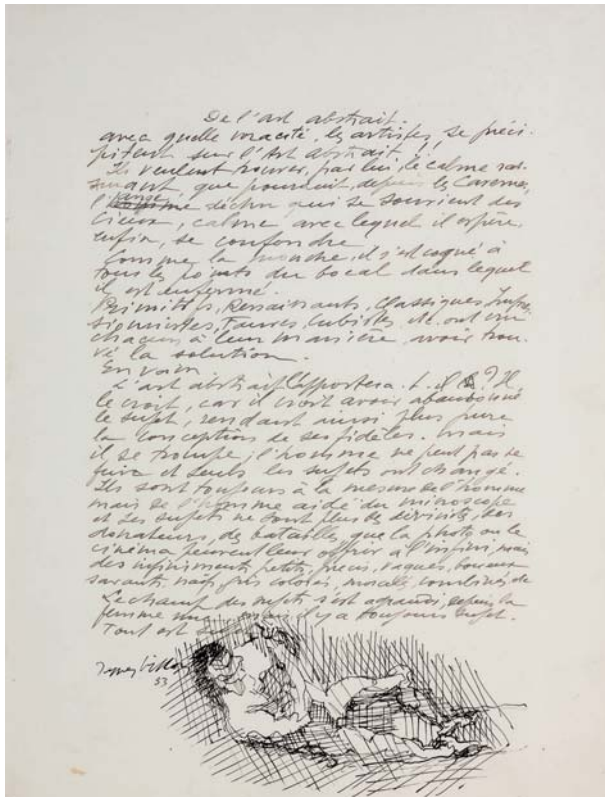 De l'Art abstrait.
avec quelle voracité les artistes, se préci-
pitent sur l'Art abstrait !!
Ils veulent trouver, par lui, le calme ras-
surant, que poursuit, depuis les Cavernes,
l' ange déchu qui se souvient des
Cieux, calme avec lequel il espère,
enfin, se confondre.
Comme la mouche, il s'est cogné à
tous les points du bocal dans lequel
il est enfermé.
Primitifs, Renaissants, Classiques, Impre-
ssionnistes, Fauves, Cubistes, etc. ont cru
chacun à leur manière avoir trou-
vé la solution.
En vain
L'art abstrait l'apportera-t-il ? Il
le croit, car il croit avoir abandonné
le sujet, rendant ainsi plus pure
la conception de ses fidèles. Mais
il se trompe ; l'homme ne peut pas se
fuir et seuls les sujets ont changé.
Ils sont toujours à la mesure de l'homme
mais de l'homme aidé du microscope
et ses sujets ne sont plus des divinités, des
donateurs, des batailles, que la photo ou le
cinéma peuvent leur offrir à l'infini, mais
des infiniments petits, précis, vagues,
savants, naïfs, gris colorés,
Le champ des sujets s'est agrandi, depuis la
femme nue il y a toujours sujet.
Tout est
Jacques Villon
53